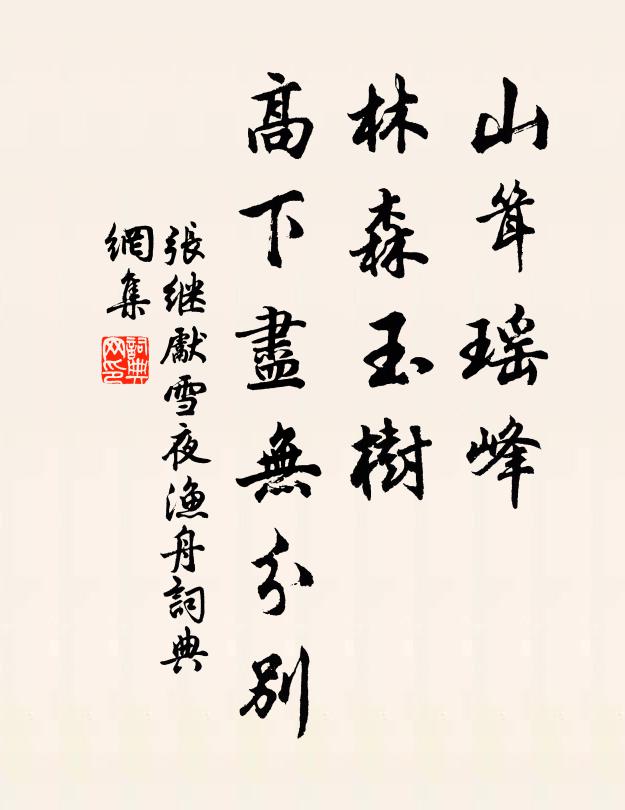 山聳瑤峰
林森玉樹
高下盡無分別
張继獻雪夜漁舟詞典
網集
詞典
网印